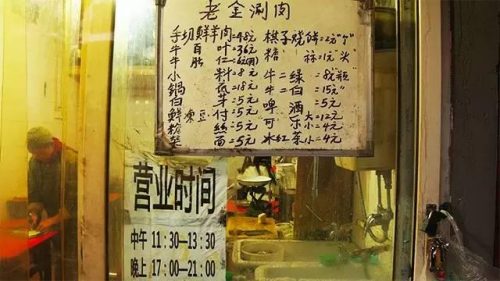 老金涮肉
手切鲜羊肉=48元
牛百叶=36元
牛肚仁=62(例)
小料=8元
锅底=18元
白芽=5元
鲜冻豆付=5元
粉丝=5元
面=5元
棋子烧饼=2.5"个"
糖蒜=1元"头"
牛二绿=8元"瓶"
牛二白=15元"
啤酒=5元
可乐大=12元
小=4元
冰红茶小=4元
营业时间
中午 11:30—13:30
晚上 17:00—21:00